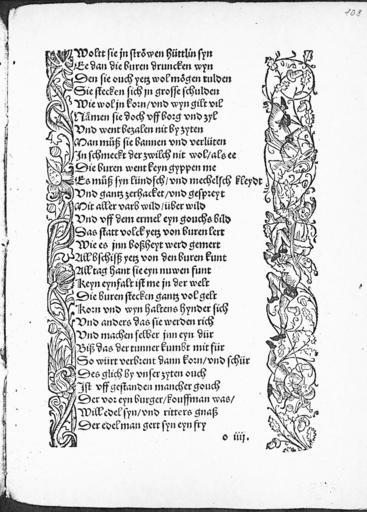 108
Wolt sie jn ströwen hüttlin syn
Ee dan die buren druncken wyn
Den sie ouch yetz wol mögen tulden
Sie stecken sich jn grosse schulden
Wie wol jn korn/vnd wyn gilt vil
Nämen sie doch vff borg vnd zyl
Vnd went bezalen nit by zyten
Man müß sie bannen vnd verlüten
In schmeckt der zwilch nit wol/als ee
Die buren went keyn gyppen me
Es müß syn lündsch/vnd mechelsch kleydt
Vnd gantz zerhacket/vnd gespreyt
Mit aller varb wild/über wild
Vnd vff dem ermel eyn gouchs bild
Das statt volck yetz von buren lert
Wie es jnn boßheyt werd gemert
All bschisß yetz von den buren kunt
All tag hant sie eyn nuwen funt
Keyn eynfalt ist me jn der welt
Die buren stecken gantz vol gelt
Korn vnd wyn haltens hynder sich
Vnd anders das sie werden rich
Vnd machen selber jnn eyn dür
Biß das der tunner kumbt mit für
So würt verbrent dann korn/vnd schür
Des glich by vnser zyten ouch
Ist vff gestanden mancher gouch
Der vor eyn burger/kouffman was/
Will edel syn/vnd ritters gnaß
Der edel man gert syn eyn fry
o iiij.